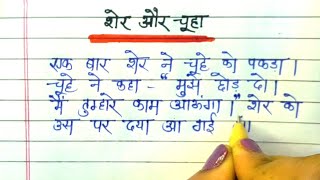 शेर और चूहा
एक बार शेर ने चूहे को पकड़ा।
चूहे ने कहा - "मुझे छोड़ दो।
मैं तुम्हारे काम आऊंगा।" शेर को
उस पर दया आ गई